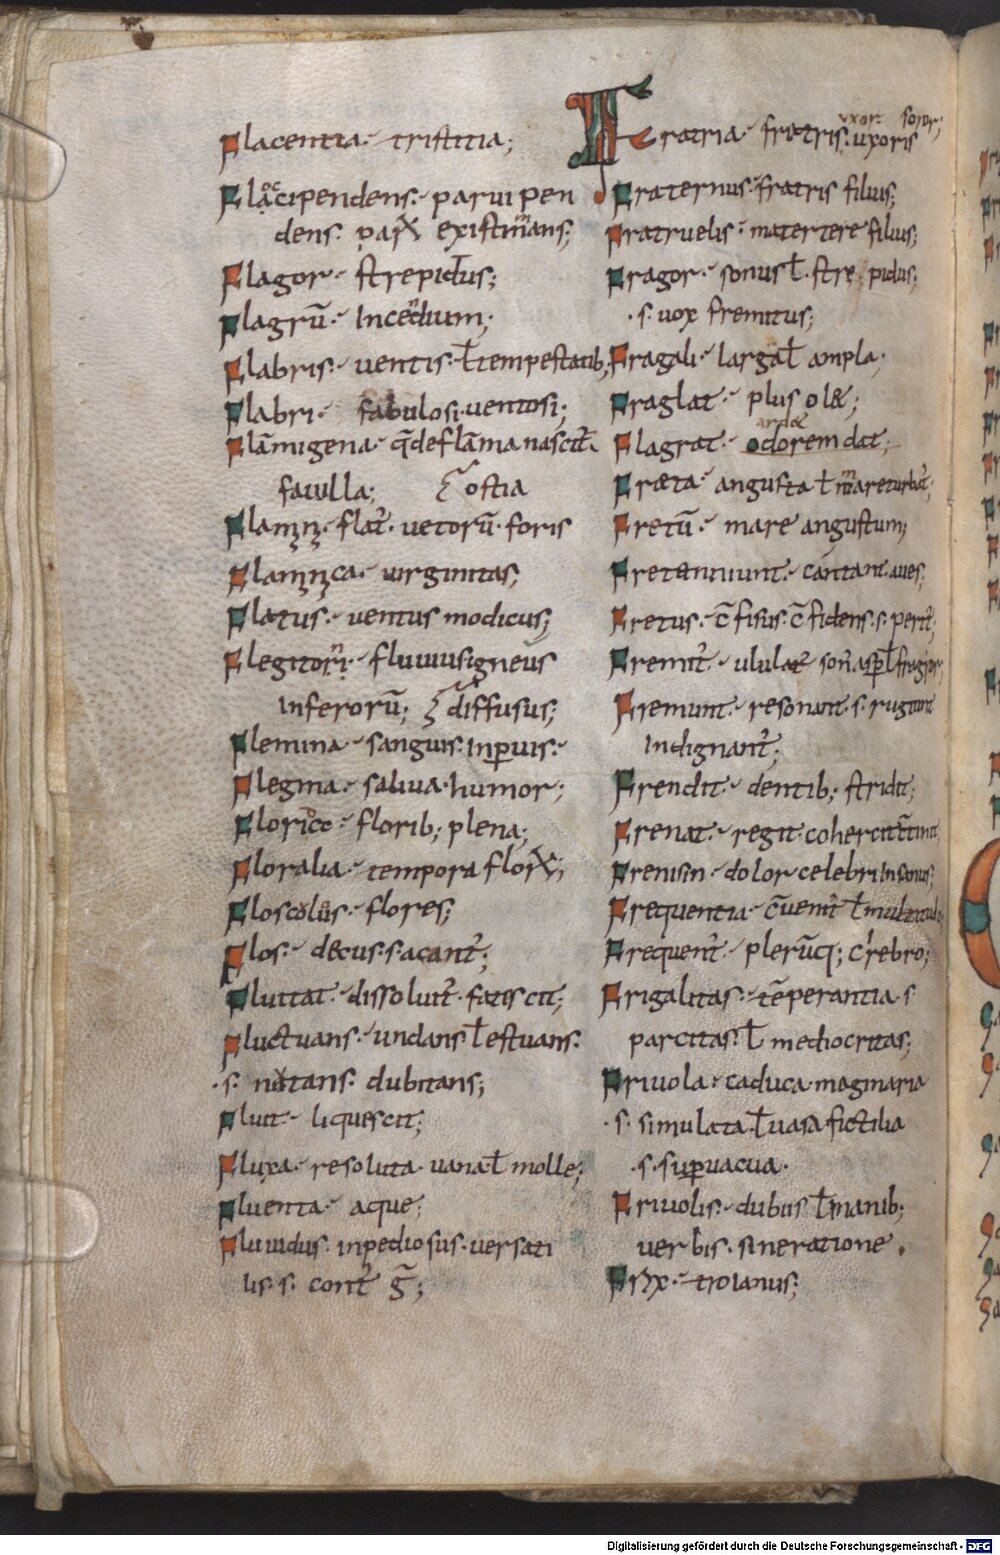 Flacentia · tristitia;
Flaccipendens · parui pen
dens · existimans;
Flagor · strepidus;
Flagrū · Incendium;
Flabris · uentis · ł tempestatib;
Flabri · fabulosi · uentosi;
Flāmigena · q̄ de flāma nascit̄
fauilla; ostia
foris
uirginitas;
Flatus · uentus modicus;
fluuius igneus
Inferorū; diffusus;
Flemina · sanguis · In
Flegma · saliua · humor;
florib; plena;
Floralia · tempora
flores;
Flos · decus
Fluitat · dissoluit̄ · fatiscit;
Fluctuans · undans ł estuans ·
· s · natans · dubitans;
Fluit · liquescit;
Fluxa · resoluta · uana ł molle;
Fluenta · aque;
Fluuidus · inpediosus · uersati
lis · s ·
Fratria · fratris · uxoris
uxor · soror;
Fraternus · fratris filius;
Fratruelis · matertere filius;
Fragor · sonus ł · strepidus;
· s · uox fremitus;
Fragali · larga ł ampla;
Fraglat · plus ol&;
ard&
Flagrat · odorem dat;
Fræta · angusta ł
Fretū · mare angustum;
cantant aues;
Fretus · c̄fisus · c̄fidens · s ·
Fremit̄ · ululat
Fremunt · resonant · s · rugiunt
Indignant̄;
Frendit · dentib; stridit;
Frenat · regit · cohercit
dolor celebri Insanus;
Frequentia · c̄uenit̄ ł
Frequent̄ · plerūq; crebro;
Frigalitas · tēperantia · s
parcitas · ł mediocritas;
Friuola · caduca · maginaria
· s · simulata · ł uasa fictilia
· s · supuacua ·
Friuolis · dubiis ł inanib;
uerbis · sine ratione ·
Frix · troianus;
Digitalisierung gefördert durch die Deutsche Forschungsgemeinschaft - DFG